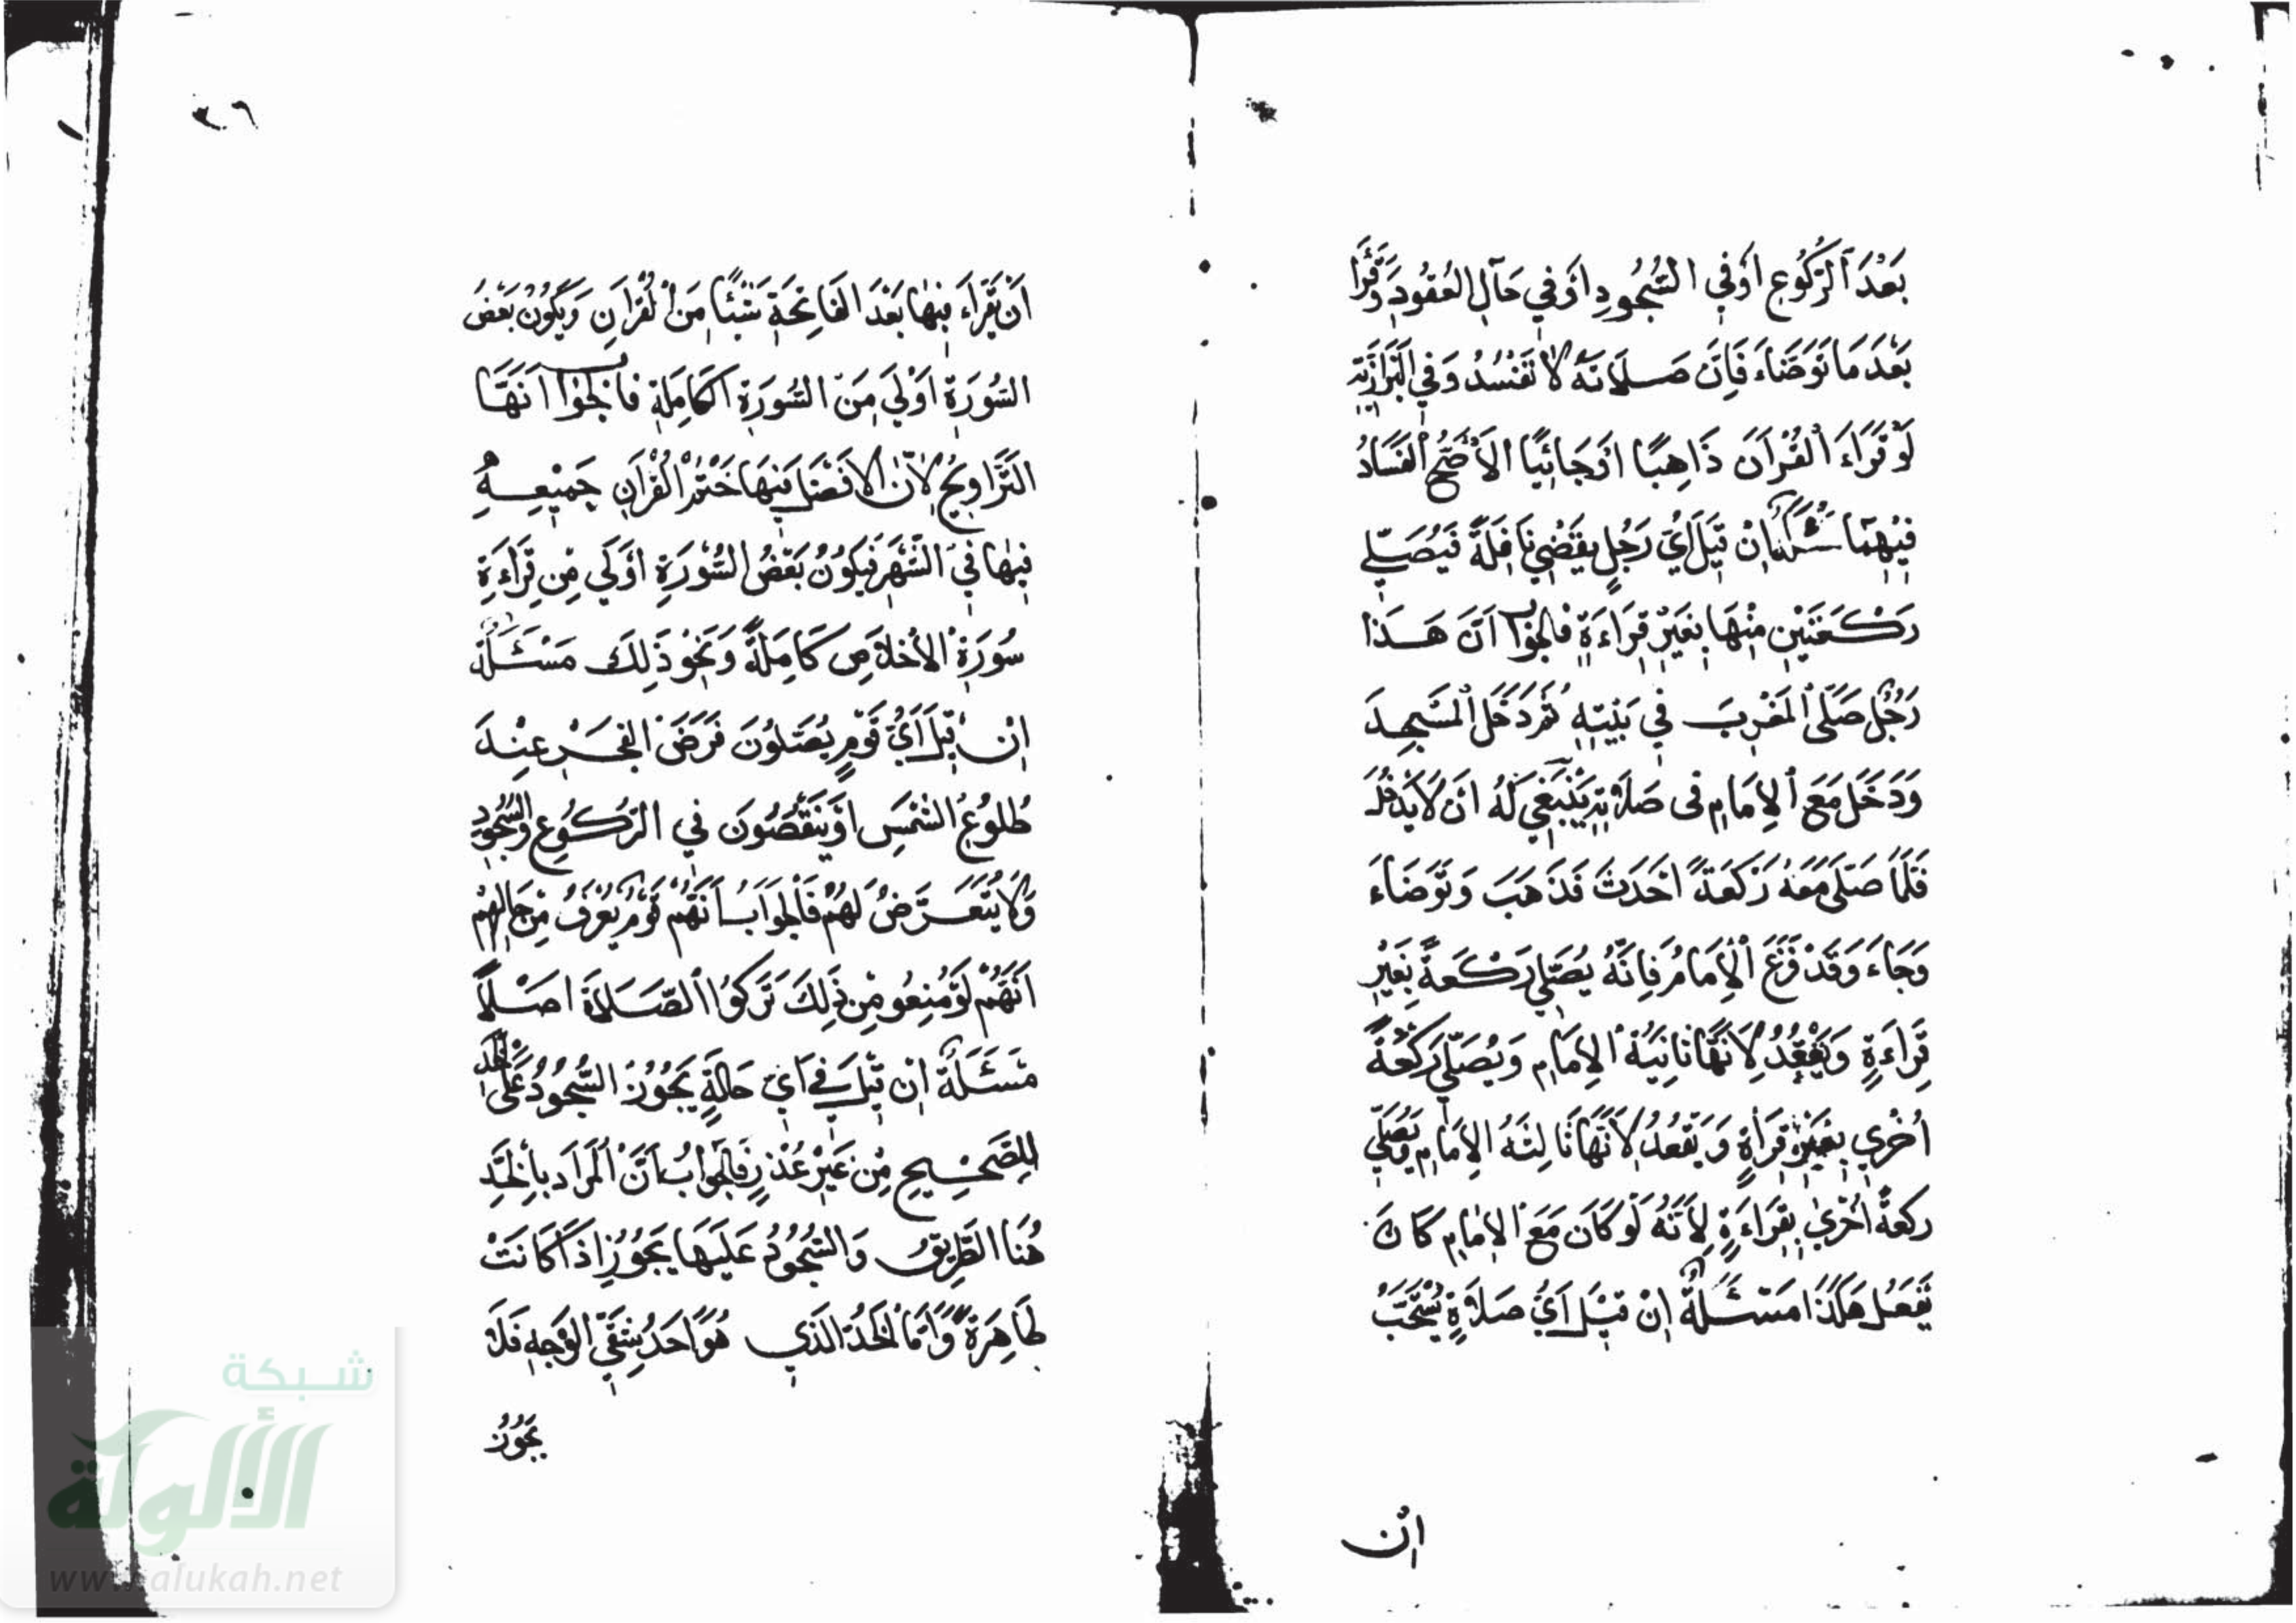 بَعْدَ الرُّكُوعِ أَوْ فِي السُّجُودِ أَوْ فِي حَالِ العُقُودِ وَقَرَا
بَعْدَ مَا تَوَضَّاءَ فَاِنَّ صَلَاتَهُ لَا تَفْسُدُ وَفِي البَزَازِيَّةِ
لَوْ قَرَاءَ القُرْاَنَ ذَاهِبًا اَوْ جَائِيًا الاَصَحُّ الفَسَادُ
فِيْهِمَا مَسْئَلَةٌ اِنْ قِيْلَ اَيُّ رَجُلٍ يَقْضِي نَافِلَةً فَيُصَلِّي
رَكْعَتَيْنِ مِنْهَا بِغَيْرِ قِرَاءَةٍ فَالجَوَابُ اَنَّ هَذَا
رَجُلٌ صَلَّى المَغْرِبَ فِي بَيْتِهِ ثُمَّ دَخَلَ المَسْجِدَ
وَدَخَلَ مَعَ الاِمَامِ فى صَلَاتِهِ يَنْبَغِي لَهُ اَنْ لَا يَدْخُلَ
فَلَمَّا صَلَّى مَعَهُ رَكْعَةً اَحْدَثَ فَذَهَبَ وَتَوَضَاءَ
وَجَاءَ وَقَدْ فَرَغَ الاِمَامُ فَاِنَّهُ يُصَلِّي رَكْعَةً بِغَيْرِ
قِرَاءَةٍ وَيَقْعُدُ لِاَنَّهَا ثَانِيَةُ الاِمَامِ وَيُصَلِّي رَكْعَةً
اُخْرَي بِغَيْرِ قِرَاةٍ وَيَقْعُدُ لِاَنَّهَا ثَالِثَهُ الاِمَامِ وَيُصَلِّي
رَكعَةً اُخْرَي بِقِرَاءَةٍ لِاَنَّهُ لَوْ كَانَ مَعَ الاِمَامِ كَانَ
يَفْعَلُ هَكَذَا مَسْئَلَةٌ اِنْ قِيْلَ اَيُّ صَلَاةٍ يُسْتَحَبُّ
اِنْ
٣٦
اَنْ يَقْرَاءَ فِيْهَا بَعْدَ الفَاتِحَةِ شَيْئًا مِنَ القُرْاَنِ وَيَكُونُ بَعْضُ
السُّورَةِ اَوْلَي مِنَ السُّورَةِ الكَامِلَةِ فالجَوَابُ اَنَّهَا
التَّرَاوِيحُ لِاَنَّ الاَفْضَلَ فِيْهَا خَتْمُ القُرْاَنِ جَمِيْعِهُ
فِيْهَا فِي الشَّهْرِ فَيَكُونُ بَعْضُ السُّورَةِ اَوْلَي مِنْ قِرَاءَةِ
سُورَةِ الاِخْلَاصِ كَامِلَةً وَنَحْوِ ذَلِكَ مَسْئَلَةٌ
اِنْ قِيْلَ اَيُّ قَوْمٍ يُصَلُّونَ فَرْضَ الفَجْرِ عِنْدَ
طُلُوعِ الشَّمْسِ اَوْ يَنْقُصُونَ فِي الرُّكُوعِ وَالسُّجُودِ
وَلَا يُتَعَرَّضُ لَهُمْ فَالجَوَابُ اَنَّهُمْ قَوْمٌ يُعْرَفُ مِنْ حَالِهِمْ
اَنَّهُمْ لَوْ مُنِعُو مِنْ ذَلِكَ تَرَكُوا الصَّلَاةَ اَصْلًا
مَسْئَلَةٌ اِنْ قِيْلَ فِي اَيِّ حَالَةٍ يَجُوْزُ السُّجُودُ عَلَى الخَدِّ
لِلصَّحِيْحِ مِنْ غَيْرِ عُذْرٍ فَالجَوَابُ اَنَّ المُرَادَ بِالخَدِّ
هُنَا الطَّرِيْقُ وَالسُّجُودُ عَلَيْهَا يَجُوْزُ اِذَا كَانَتْ
طَاهِرَةً وَاَمَّا الخَدُّ الَّذِي هُوَ اَحَدُ شِقَّيِ الوَجْهِ فَلَا
يَجُوْزُ
شبكة
الألوكة
www.alukah.net